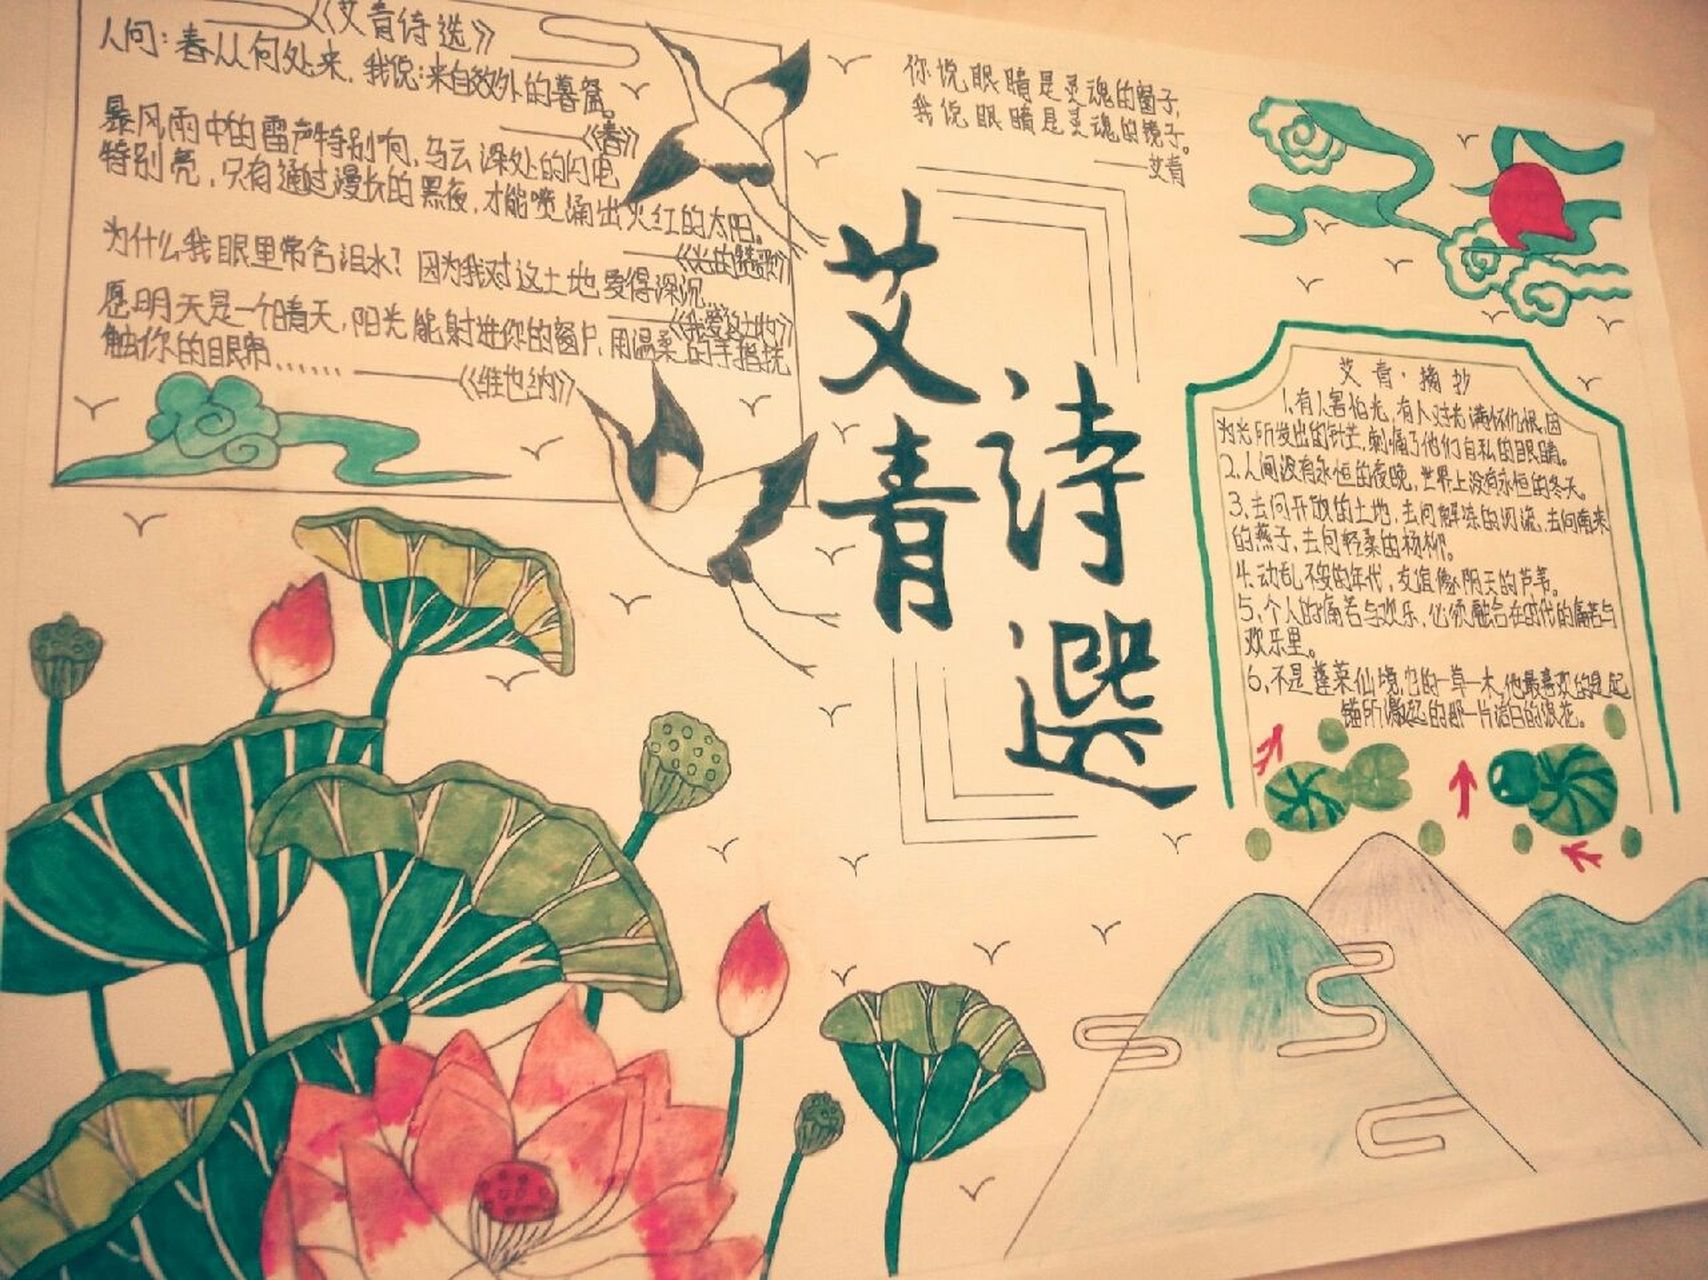 《艾青诗选》
人问：春从何处来，我说：来自郊外的暮窟。
——《春》
暴风雨中的雷声特别响，乌云深处的闪电
特别亮，只有通过漫长的黑夜，才能喷涌出火红的太阳。
——《光的赞歌》
为什么我眼里常含泪水？因为我对这土地爱得深沉
——《我爱这土地》
愿明天是一个晴天，阳光能射进你的窗户，用温柔的手指抚
触你的眼帘……
——《维也纳》
你说眼睛是灵魂的窗子，
我说眼睛是灵魂的镜子。
——艾青
艾青
诗選
艾青·摘抄
1、有人害怕光，有人对光满怀仇恨，因
为光所发出的针芒，刺痛了他们自私的眼睛。
2、人间没有永恒的夜晚，世界上没有永恒的冬天。
3、去问开放的土地，去问解冻的河流，去问南来
的燕子，去问轻柔的杨柳。
4、动乱不安的年代，友谊像阴天的芦苇。
5、个人的痛苦与欢乐，必须融合在时代的痛苦与
欢乐里。
6、不是蓬莱仙境，它的一草一木，他最喜欢的是起
锚所激起的那一片洁白的浪花。